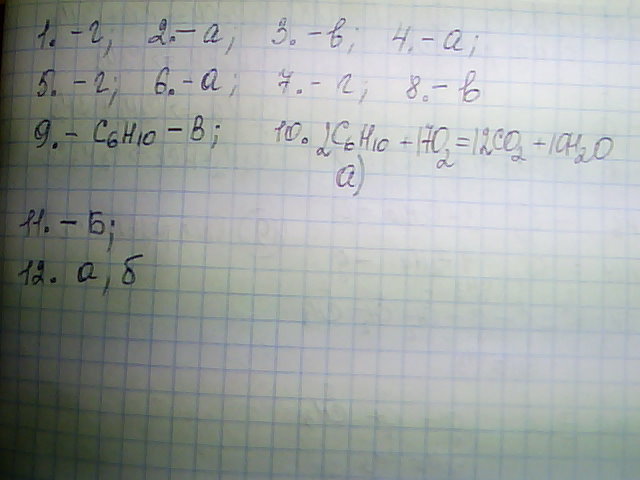 1. - г; 2. - а; 3. - в; 4. - а;
5. - г; 6. - а; 7. - г; 8. - в
9. - C₆H₁₀ - В; 10. 2C₆H₁₀ + 17O₂ = 12CO₂ + 10H₂O
а)
11. - Б;
12. а, б